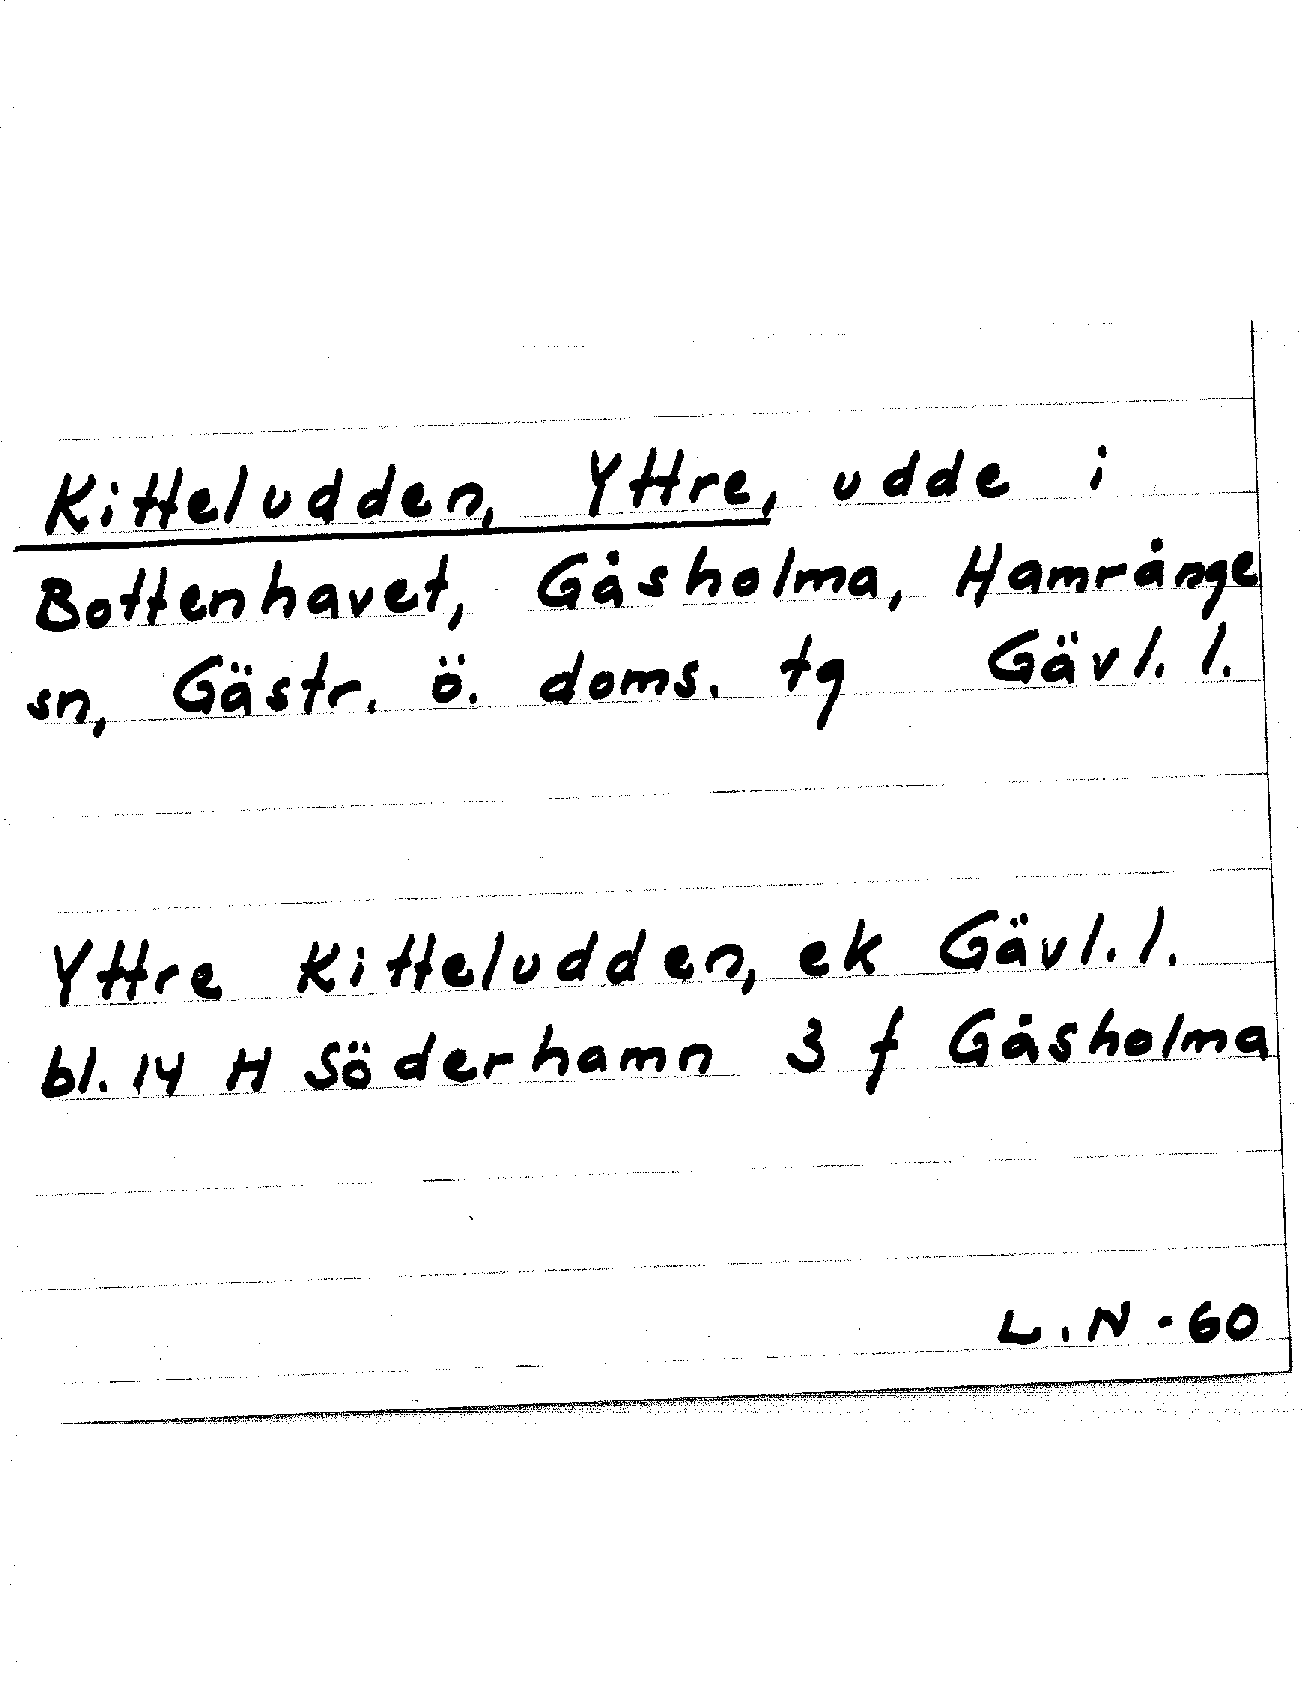 Kitteludden, Yttre, udde i
Bottenhavet, Gåsholma, Hamrånge
sn, Gästr. ö. doms. tg Gävl. l.
Yttre Kitteludden, ek Gävl. l.
bl. 14 H Söderhamn 3 f Gåsholma
L.N - 60